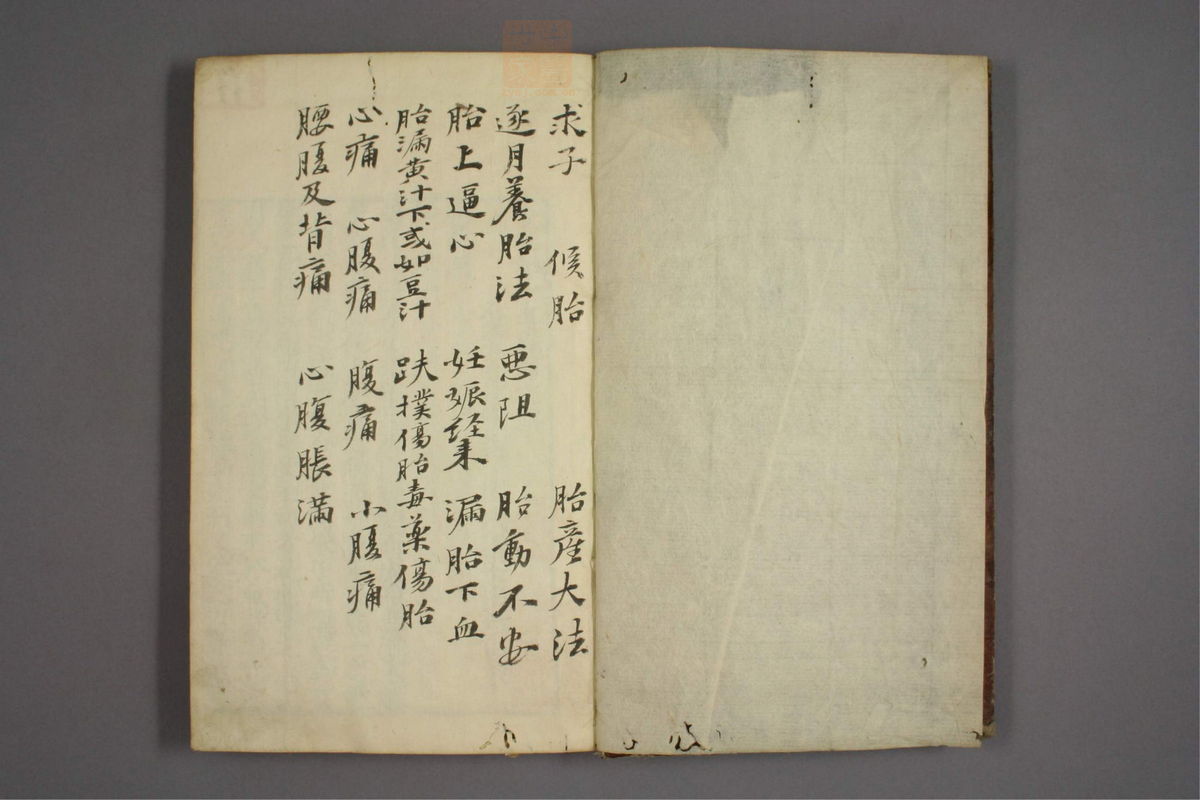 求子 候胎 胎産大法
逐月養胎法 悪阻 胎動不安
胎上逼心 妊娠経来 漏胎下血
胎漏黄汁下或如豆汁 趺撲傷胎毒薬傷胎
心痛 心腹痛 腹痛 小腹痛
腰腹及背痛 心腹脹満